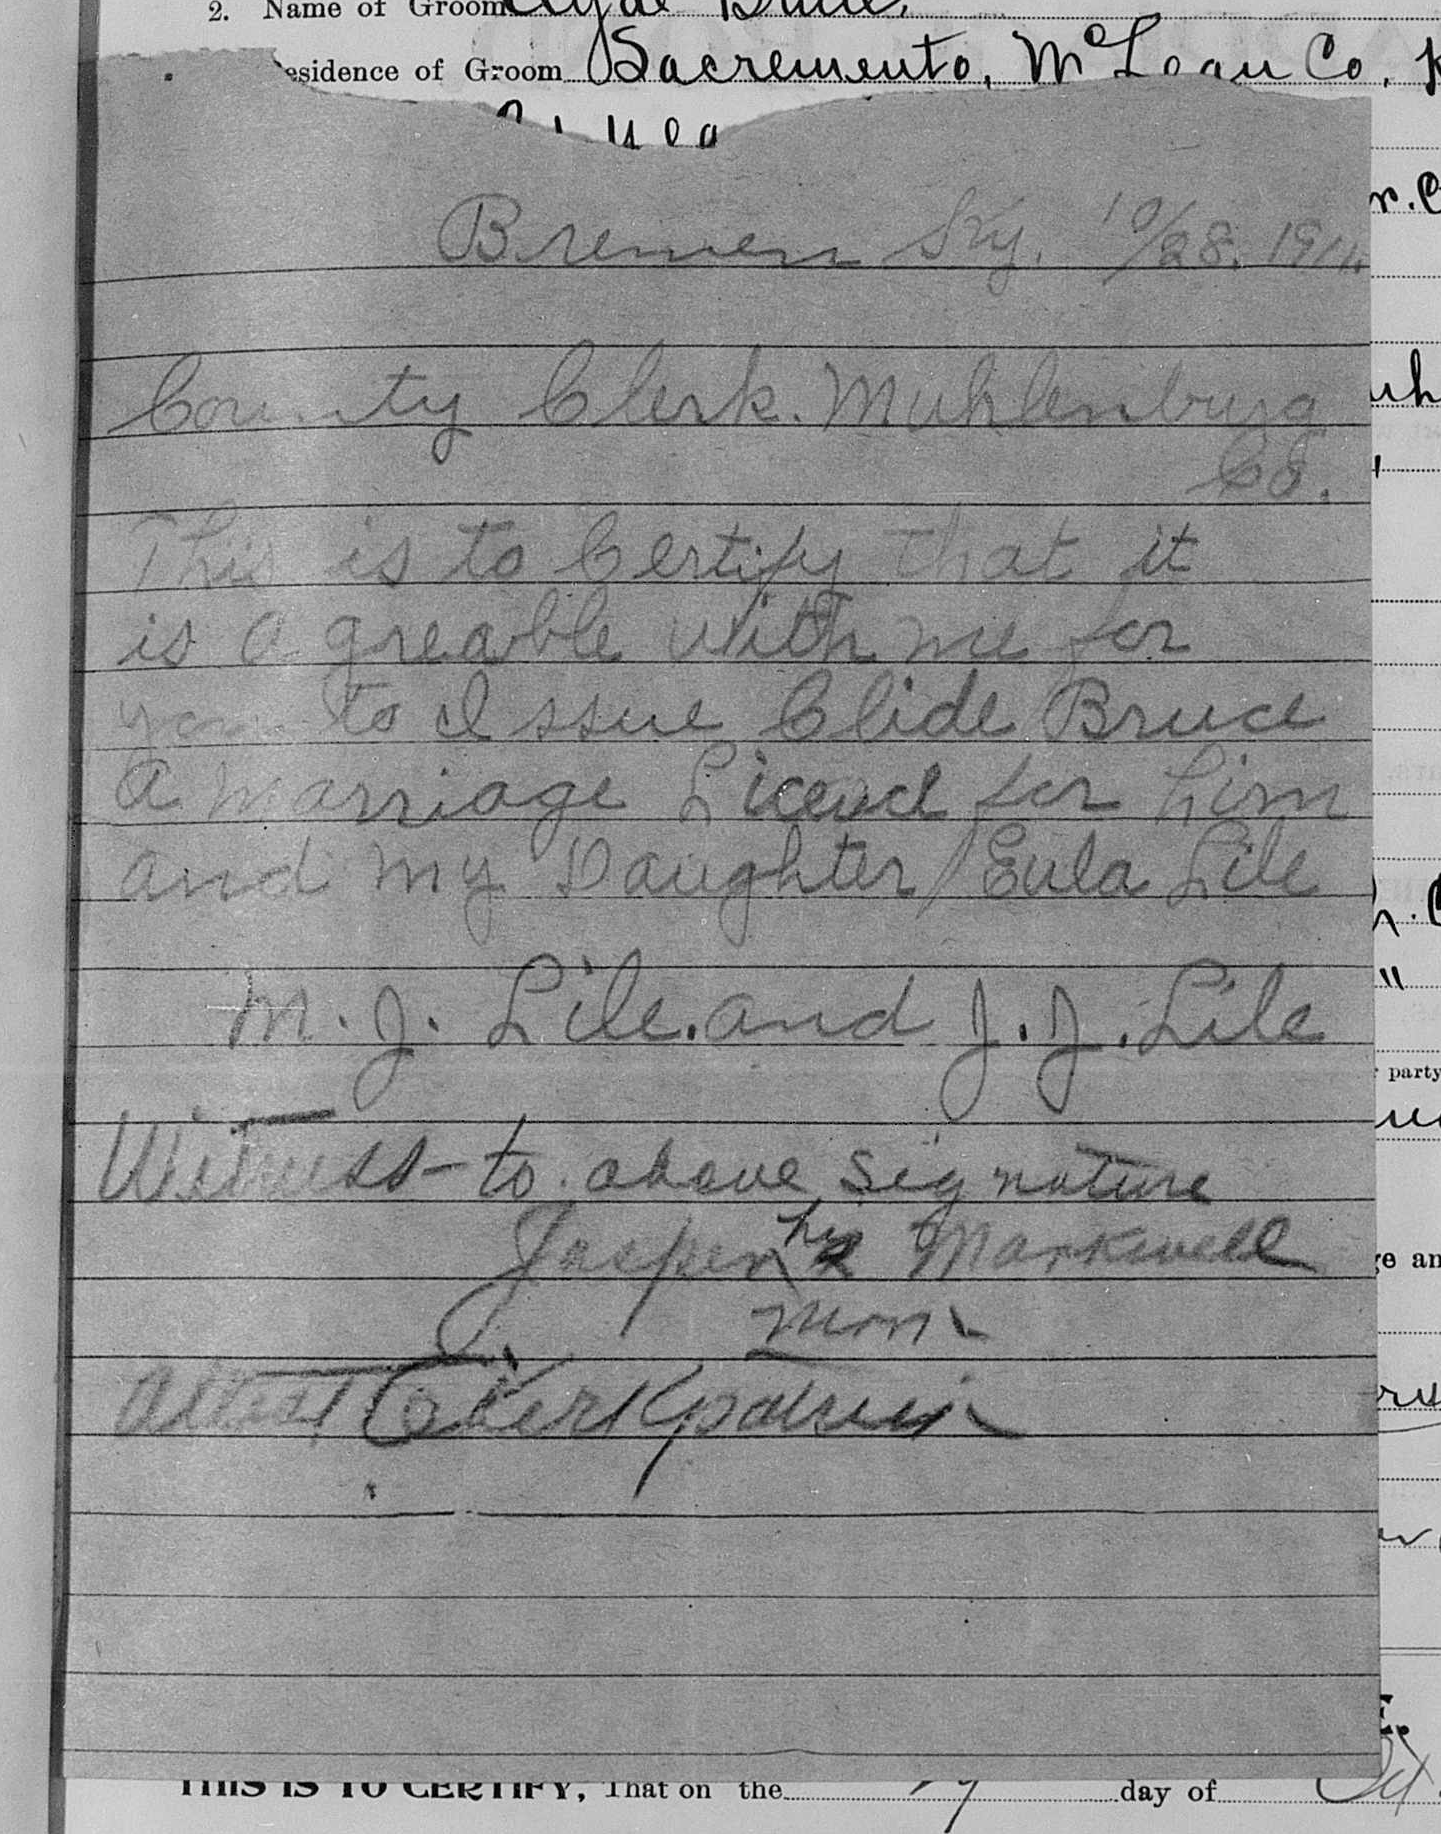 2. Name of Groom Clyde Bruce,
esidence of Groom Sacremento, McLean Co. K
21 yea
Bremen Ky. 10/28. 1914.
r. C
County Clerk. Muhlenburg
uh
Co.
This is to Certify that it
is a greable with me for
you to Issue Clide Bruce
a marriage Licence for him
and my Daughter Eula Lile
h. C
M. J. Lile. and J. J. Lile
"
party
Witness to above signature
Jasper his x Markwell
ge an
mark
Attest
E.
THIS IS TO CERTIFY, That on the 29 day of Oct